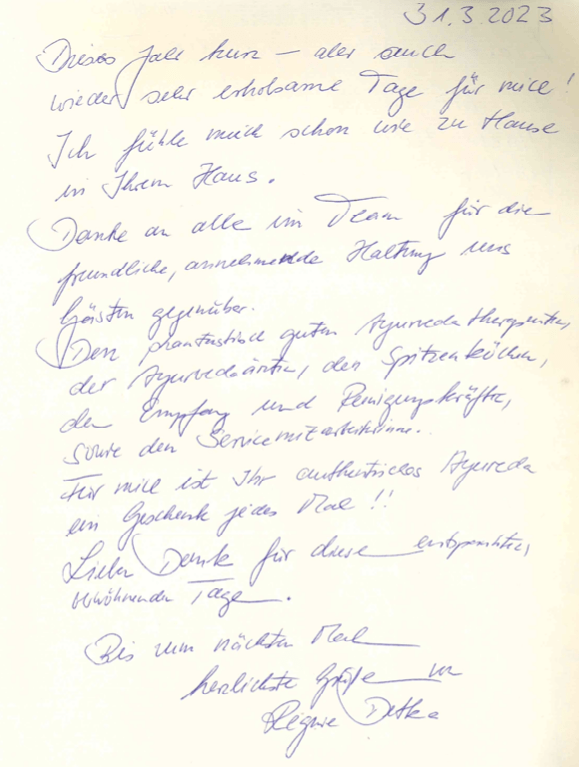 31.3.2023
Dieses Jahr kurz – aber auch
wieder sehr erholsame Tage für mich!
Ich fühle mich schon wie zu Hause
in Ihrem Haus.
Danke an alle im Team für die
freundliche, annehmende Haltung uns
Gästen gegenüber.
Den phantastisch guten Ayurvedatherapeuten,
der Ayurvedaärztin, den Spitzenköchen,
dem Empfang und Reinigungskräfte,
sowie den Servicemitarbeiterinnen.
Für mich ist Ihr authentisches Ayurveda
ein Geschenk jedes Mal!!
Lieben Dank für diese entspannten,
verwöhnenden Tage.
Bis zum nächsten Mal
herzlichste Grüße von